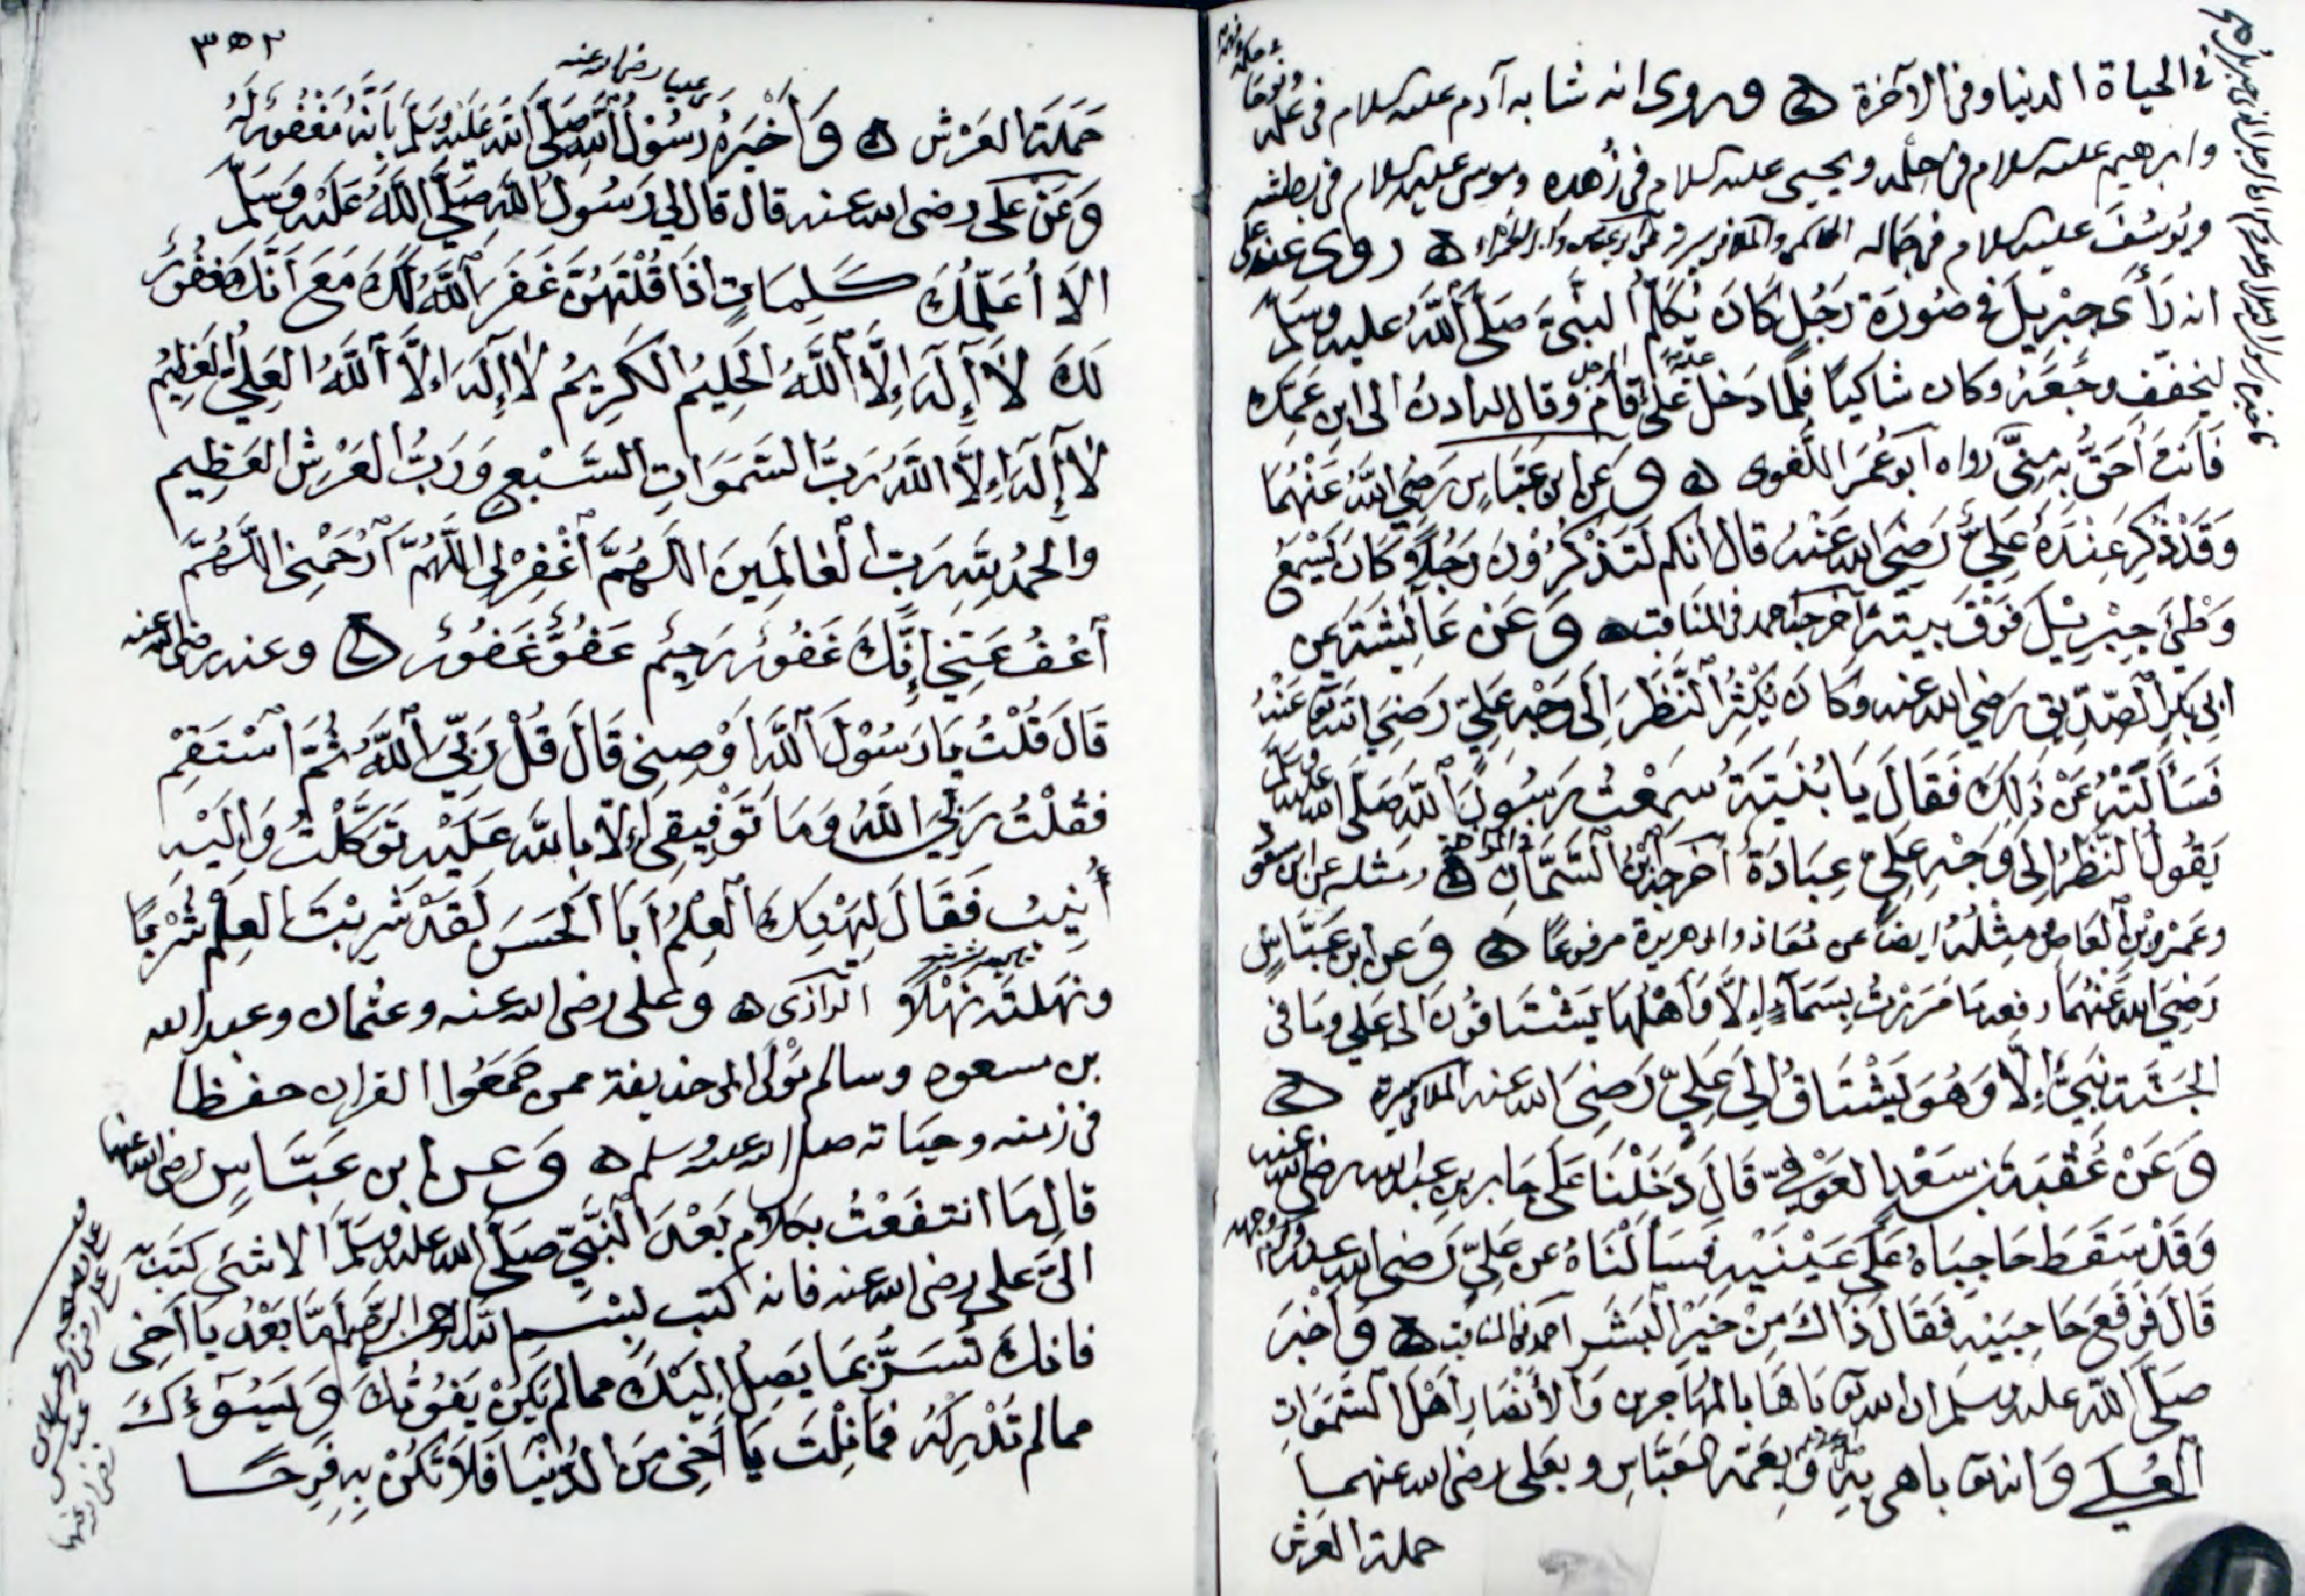 في الحياة الدنيا وفي الآخرة ه وروى انه شابه آدم عليه السلام في علمه
وابرهيم عليه السلام في حلمه ويحيى عليه السلام في زهده وموسى عليه السلام في بطشه
ويُوسُفَ عليه السلام في جماله ه روى عنه
انه رَأَى جبْريلَ في صُورَة رَجُلٍ كَانَ يُكَلِّمُ النبيَّ صَلَّى اللَّهُ عليه وسَلم
ليخفّف وجَعَهُ وكان شاكياً فلمّا دَخل عَليٌّ قامَ وقال له ادنُ الى ابن عَمِّكَ
فَأنتَ أَحَقُّ به مِنِّي رواه أبو عُمَر اللُّغوى ه وَعَن ابن عَبَّاسٍ رَضِيَ اللَّهُ عَنْهُمَا
وَقَدْ ذُكِرَ عِنْدَهُ عَلِيٌّ رَضِيَ الله عَنْهُ قال انكم لَتَذْكُرُوْنَ رَجُلًا كَانَ يَسْمَعُ
وَطْئَ جِبْرِيْلَ فَوْقَ بيته أخرجه أحمد في المناقب ه وَعَنْ عَائِشَةَ عَن
ابي بَكرٍ الصِّدِّيق رَضي الله عنه وكَانَ يُكْثِرُ النَّظَرَ إِلَى وَجْهِ عَلِيّ رَضِيَ الله عَنْهُ
فَسَأَلَتْهُ عَنْ ذَلِكَ فَقَالَ يَا بُنَيَّةَ سَمِعْتُ رَسُولَ اللَّه صَلَّى الله عليه وسلم
يَقُولُ النَّظَرُ إلَى وَجْهِ عَلِيّ عِبَادَةٌ أَخرجه ابْنُ السَّمَّانِ ه ومثله عن ابن مسعود
وعَمْرو بْنِ الْعَاصِ مِثْلُهُ ايضاً عن مُعَاذ وابى هريرة مرفوعًا ه وَعن ابن عَبَّاسٍ
رَضِيَ الله عَنْهُمَا رفعه مَا مَرَرْتُ بِسَمَاءٍ إِلَّا وَأَهْلُهَا يَشْتَاقُونَ الى عَلِي وما في
الجَنَّة نَبِيٌّ إِلَّا وَهُوَ يَشْتَاقُ إلى عَلِيّ رَضِيَ الله عنه الملا في سيرته ه
وَعَنْ عُقْبَة بْن سَعْدٍ العَوْفيّ قالَ دَخَلْنَا عَلَى جَابر بن عبد الله رضي الله عنه
وَقَدْ سَقَطَ حَاجِبَاهُ عَلَى عَيْنَيْهِ فَسَأَلْنَاهُ عن عَلِيّ رَضي الله عنه وكرم وجهه
قَالَ فَرَفَعَ حَاجِبَيْهِ فَقَالَ ذَاكَ مِنْ خَيْرِ الْبَشَر أحمد في المناقب ه وَأخْبَرَ
صَلَّى اللَّه عليه وسلم ان الله تعالى بَاهَا بالمُهَاجرين وَالأَنْصَارِ أَهْلَ السَّمَوَاتِ
الْعُلى وَانه تعالى باهى بِهِ وَبعَمِّهِ العَبَّاسِ وبعَلى رضى الله عنهما
حملة العرش
٣٥٢
حَمَلَةَ العَرْش ه وَأَخْبَرَهُ رَسُوْلُ اللَّهِ صَلَّى اللَّهُ عَلَيْهِ وَسَلَّمَ بِأَنَّهُ مَغْفُورٌ لَهُ
وَعَنْ عَلى رضى الله عنه قال قال لي رَسُولُ اللَّه صَلَّى اللَّهُ عَلَيْهِ وَسَلَّمَ
الاَ أُعَلِّمُكَ كَلِمَاتٍ اذَا قُلْتَهُنَّ غَفَرَ اللَّهُ لَكَ مَعَ أَنَّكَ مَغفُورٌ
لَكَ لَا إِلَهَ إِلَّا اللَّهُ الحَلِيْمُ الكَرِيْمُ لَا إِلَهَ إلَّا اللَّهُ العَلِيُّ العَظِيْمُ
لَا إِلَهَ إِلَّا اللَّهُ رَبُّ السَّمَوَاتِ السَّبْعِ وَرَبُّ العَرْشِ العَظِيمِ
والحمْدُ لِلَّهِ رَبِّ الْعَالَمِينَ اللَّهُمَّ أغْفِرْ لِى اللَّهُمَّ أرْحَمْنِى اللَّهُمَّ
أعْفُ عَنِّي إِنَّكَ غَفُورٌ رَحِيْم عَفُوٌّ غَفُوْرٌ ه وعنه رضى الله عنه
قَالَ قُلْتُ يَا رَسُوْلَ اللَّه أَوْصِنِى قَالَ قُلْ رَبِّيَ اللَّهُ ثُمَّ اسْتَقِمْ
فقُلْتُ رَبِّيَ اللَّهُ وَمَا تَوْفِيقِى إلَّا باللَّه عَلَيْهِ تَوَكَّلْتُ وَإلَيْهِ
أُنِيبُ فَقَالَ لِيَهْنِكَ الْعِلْمُ أَبَا الحَسَنِ لَقَدْ شَرِبْتَ العِلْمَ شُرْبًا
ونهَلتَه نَهْلًا الرازى ه وعلى رضى الله عنه وعثمان وعبد الله
بن مسعود وسالم مَوْلَى ابى حذيفة ممن جَمَعُوا القران حفظاً
فى زمنه وحياته صلى الله عليه وسلم ه وَعن ابن عَبَّاسٍ رضى الله عنهما
قال مَا انتفَعْتُ بكلَام بَعْدَ النَّبيِّ صَلَّى الله عليه وسَلَّمَ الا شئ كَتَبَ به
الَىَّ على رضى الله عنه فانه كتب بسْم اللَّه الرحمن الرَّحيم أَمَّا بَعْدُ يَا أَخِى
فانكَ تُسَرُّ بمَا يَصِلُ إلَيْكَ مما لم يَكُنْ يَفُوْتُكَ وَيَسُوْءُكَ
مما لم تُدْرِكْهُ فَمَا نِلْتَ يَا أَخِى مِنَ الدُّنْيَا فَلَا تَكُنْ بِهِ فَرِحًا